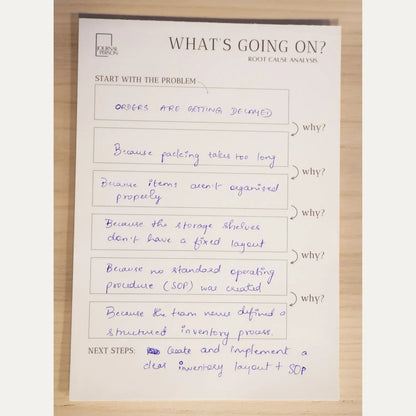 JOURNAL
PERSON
WHAT'S GOING ON?
ROOT CAUSE ANALYSIS
START WITH THE PROBLEM
ORDERS ARE GETTING DELAYED
why?
Because packing takes too long
why?
Because items aren't organised
properly
why?
Because the storage shelves
don't have a fixed layout
why?
Because no standard operating
procedure (SOP) was created
why?
Because the team never defined a
structured inventory process.
NEXT STEPS: Create and implement a
clear inventory layout + SOP